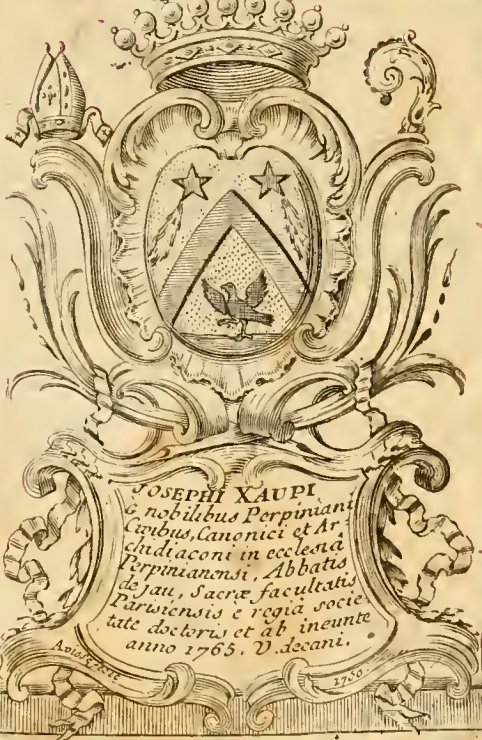 JOSEPHI XAUPI
è nobilibus Perpiniani
Civibus, Canonici et Ar-
chidiaconi in ecclesiâ
Perpinianensi, Abbatis
de Jau, Sacræ facultatis
Parisiensis è regiâ socie-
tate doctoris et ab ineunte
anno 1765. V. decani.
1750.